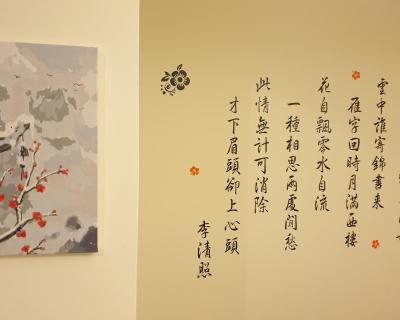 雲中誰寄錦書來
雁字回時月滿西樓
花自飄零水自流
一種相思兩處閒愁
此情無計可消除
才下眉頭卻上心頭
李清照